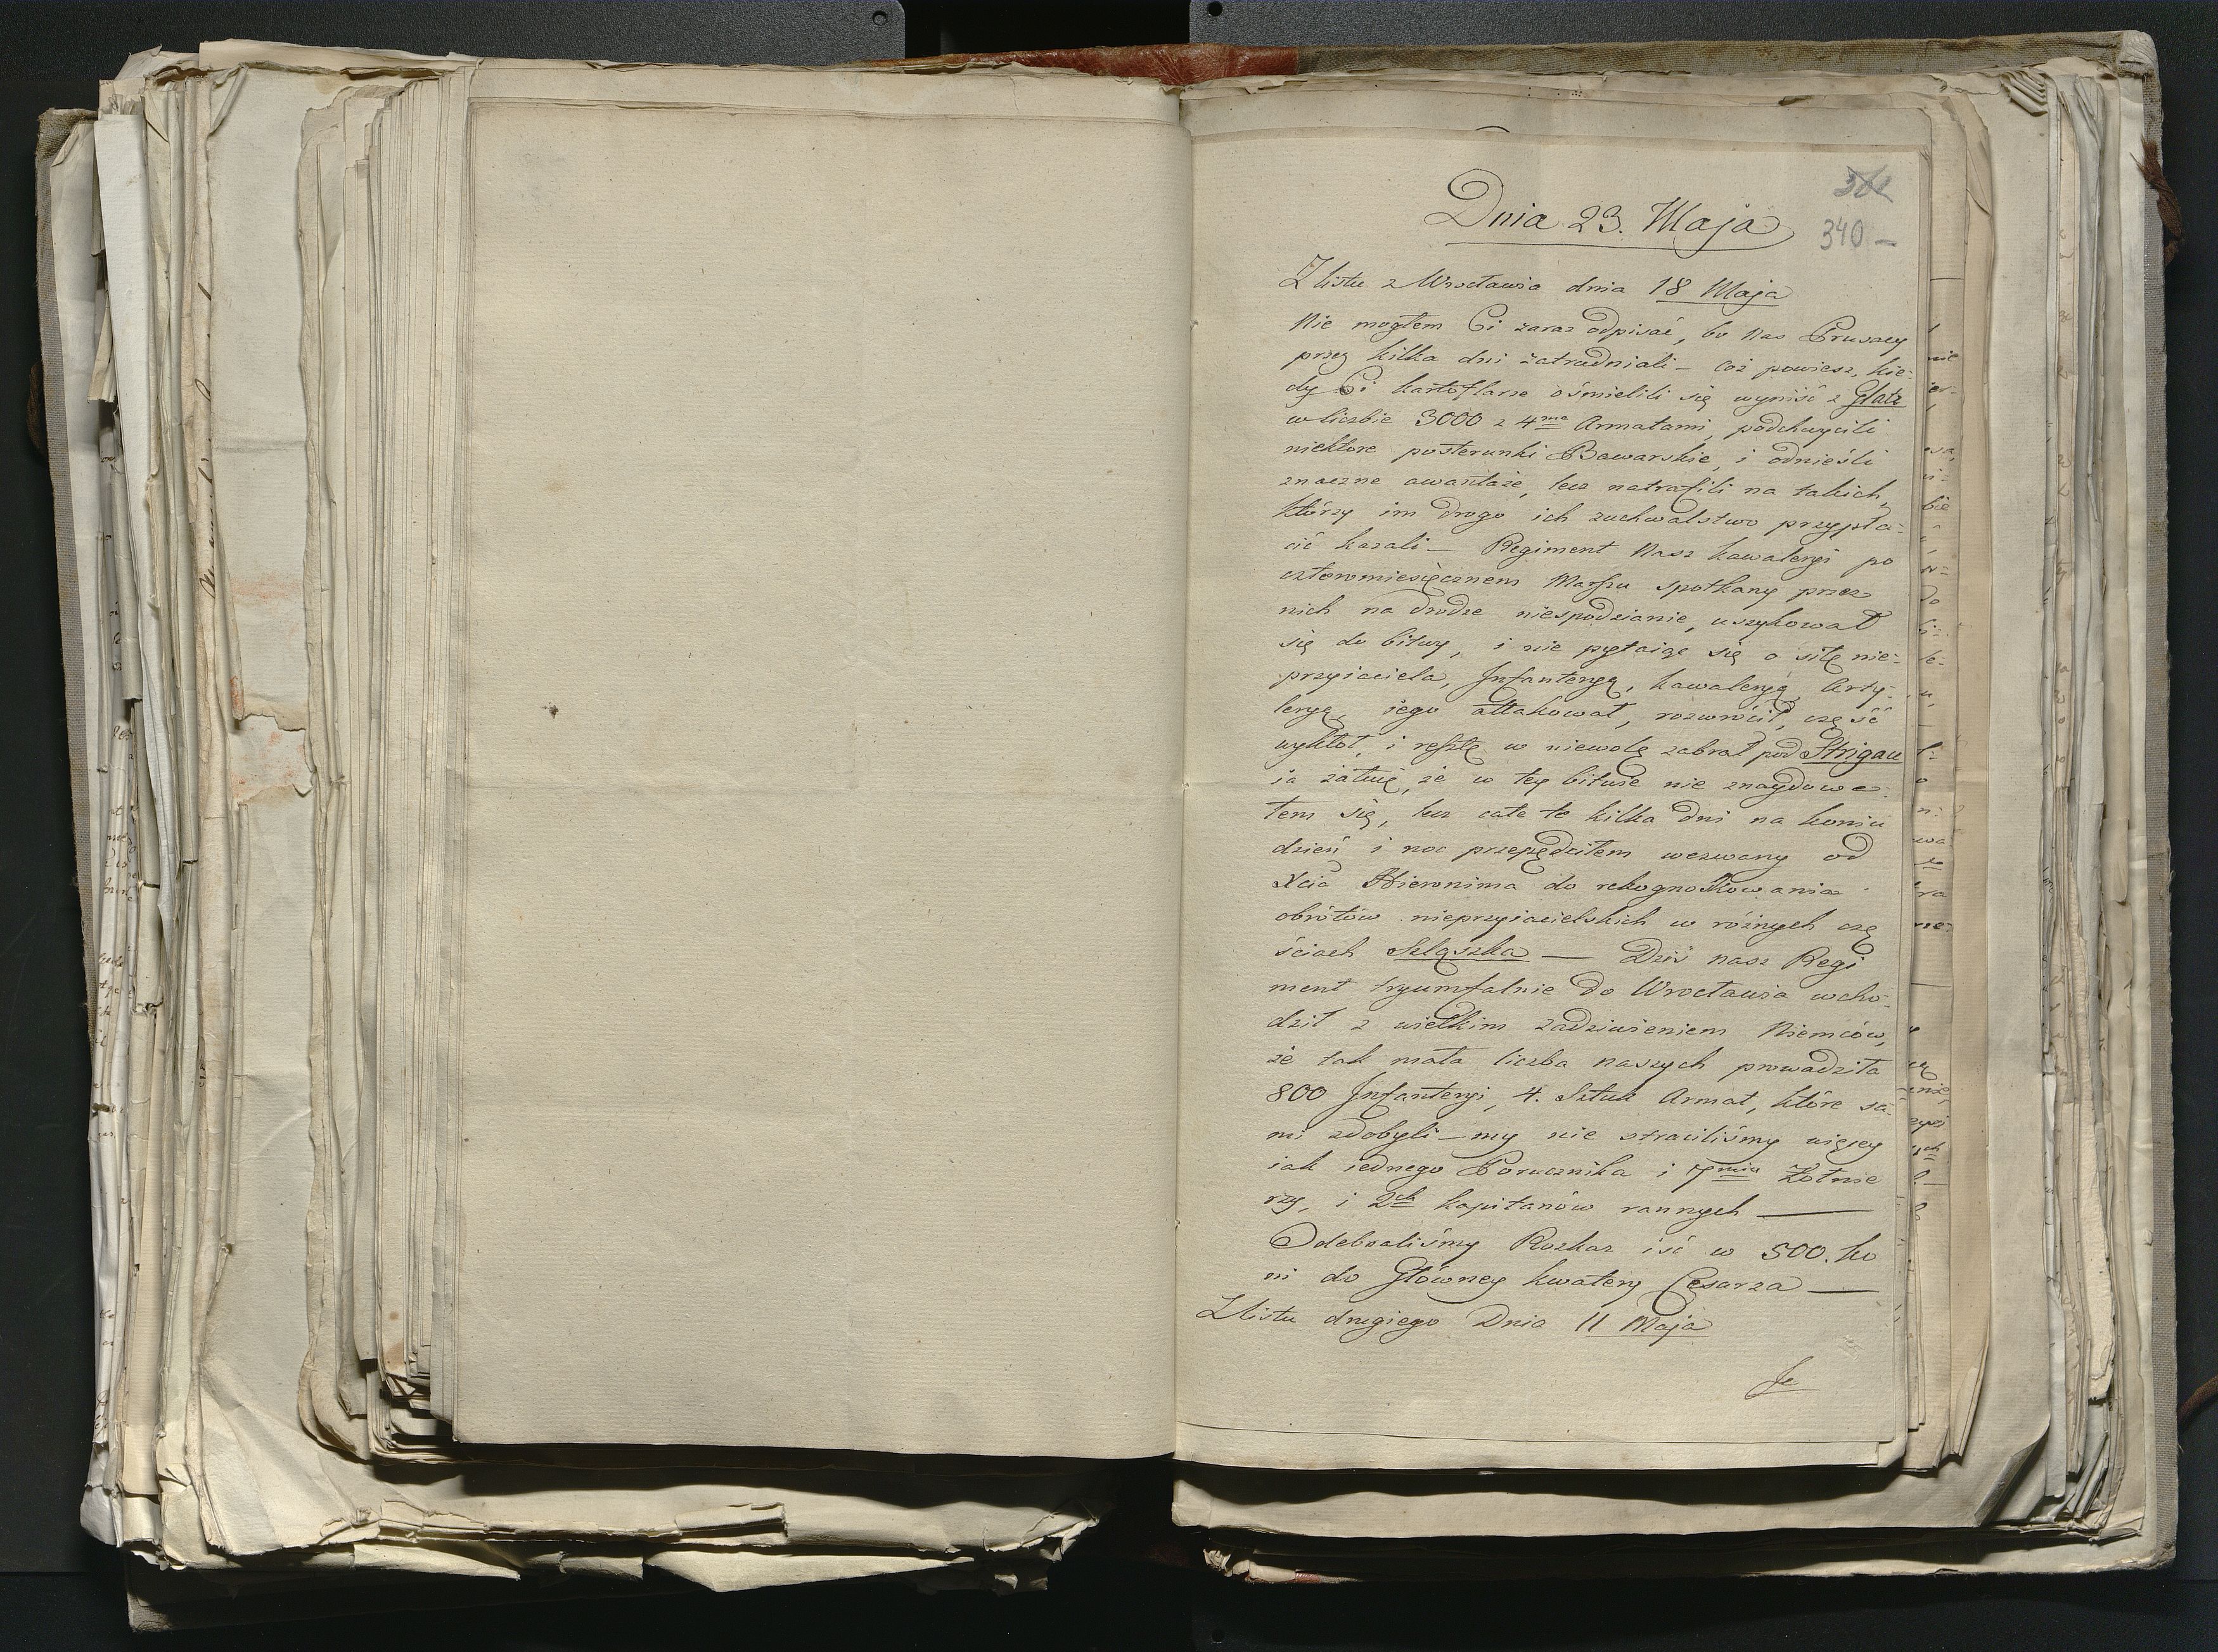 Dnia 23. Maja
340 –
Z listu z Wrocławia dnia 18 Maja
Nie mogłem Ci zaraz odpisać, bo nas Prusacy
przez kilka dni zatrudniali – coż powiesz, kie=
dy Ci kartoflarze ośmielili się wyniść z Glatz
w liczbie 3000 z 4ma Armatami, podchwycili
niektore posterunki Bawarskie, i odnieśli
znaczne awantaże, lecz natrafili na takich,
którzy im drogo ich zuchwalstwo przypła=
cić kazali – Regiment Nasz kawaleryi po
czteromiesięcznem Marszu spotkany przez
nich na drodze niespodzianie, uszykował
się do bitwy, i nie pytaiąc się o siłę nie=
przyiaciela, Infanteryą, kawaleryą, Arty=
leryą iego attakował, rozwrócił, część
wykłot, i resztę w niewolę zabrał pod Strigau
ia żałuię, że w tey bitwie nie znaydowa=
łem się, lecz całe te kilka dni na koniu
dzień i noc przepędziłem wezwany od
Xcia Hieronima do rekognoskowania
obrotów nieprzyiacielskich w różnych czę
ściach Szląszka — Dziś nasz Regi
ment tryumfalnie do Wrocławia wcho=
dził z wielkim zadziwieniem Niemców,
że tak mała liczba naszych prowadziła
800 Infanteryi, 4. Sztuk Armat, które sa=
mi zdobyli – my nie straciliśmy więcey
iak iednego Porucznika i 7miu Żołnie
rzy, i 2ch kapitanów rannych —
Odebraliśmy Rozkaz iść w 500. ko
ni do Główney kwatery Cesarza —
Z listu drugiego Dnia 11 Maja
Je